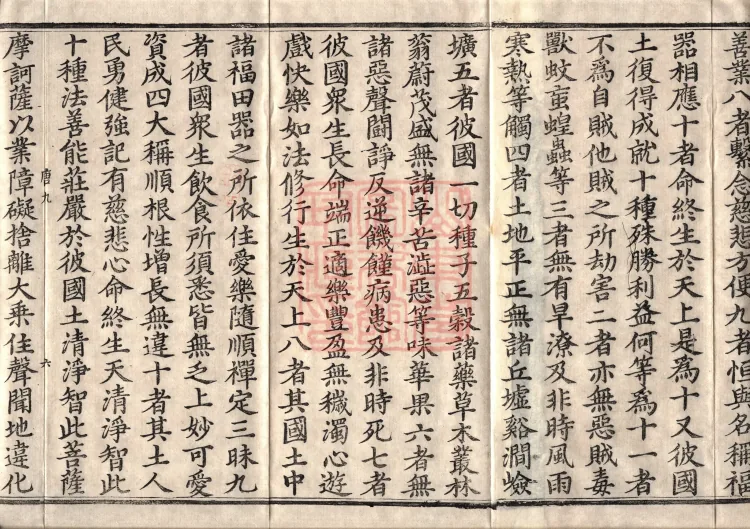 善業八者繫念慈悲方便九者恒與名稱福
器相應十者命終生於天上是爲十又彼國
土復得成就十種殊勝利益何等爲十一者
不爲自賊他賊之所劫害二者亦無惡賊毒
獸蚊䖟蝗蟲等三者無有旱潦及非時風雨
寒熱等觸四者土地平正無諸丘墟谿澗嶮
壙五者彼國一切種子五糓諸藥草木叢林
蓊蔚茂盛無諸辛苦澁惡等味華果六者無
諸惡聲鬪諍反逆饑饉病患及非時死七者
彼國衆生長命端正適樂豐盈無穢濁心遊
戲快樂如法修行生於天上八者其國土中
諸福田器之所依住愛樂隨順禪定三昧九
者彼國衆生飲食所須悉皆無乏上妙可愛
資成四大稱順根性增長無違十者其土人
民勇健強記有慈悲心命終生天清淨智此
唐九 六
十種法善能莊嚴於彼國土清淨智此菩薩
摩訶薩以業障礙捨離大乗住聲聞地違化